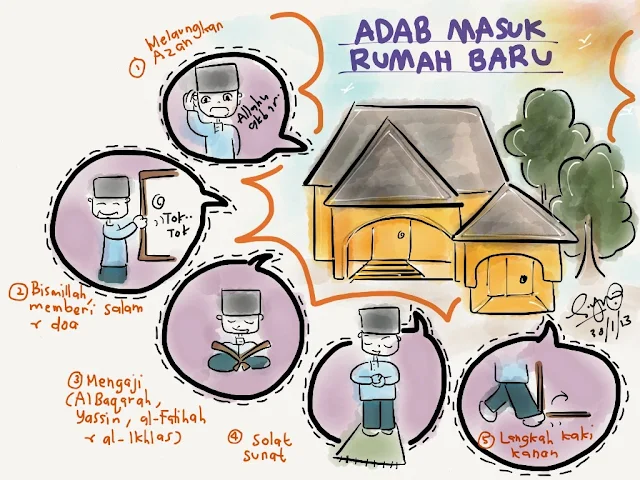 ADAB MASUK
RUMAH BARU
① Melaungkan
Azan
Allahu
akbar..
Tok..
Tok
② Bismillah,
memberi salam
& doa
③ Mengaji
(AlBaqarah,
Yassin, al-Fatihah
& al-Ikhlas)
④ Solat
sunat
⑤ Langkah kaki
kanan
30/1/13